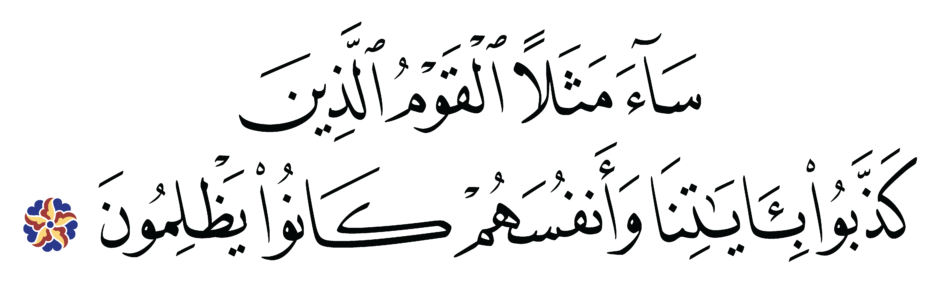 سَآءَ مَثَلًا ٱلْقَوْمُ ٱلَّذِينَ
كَذَّبُوا۟ بِـَٔايَـٰتِنَا وَأَنفُسَهُمْ كَانُوا۟ يَظْلِمُونَ